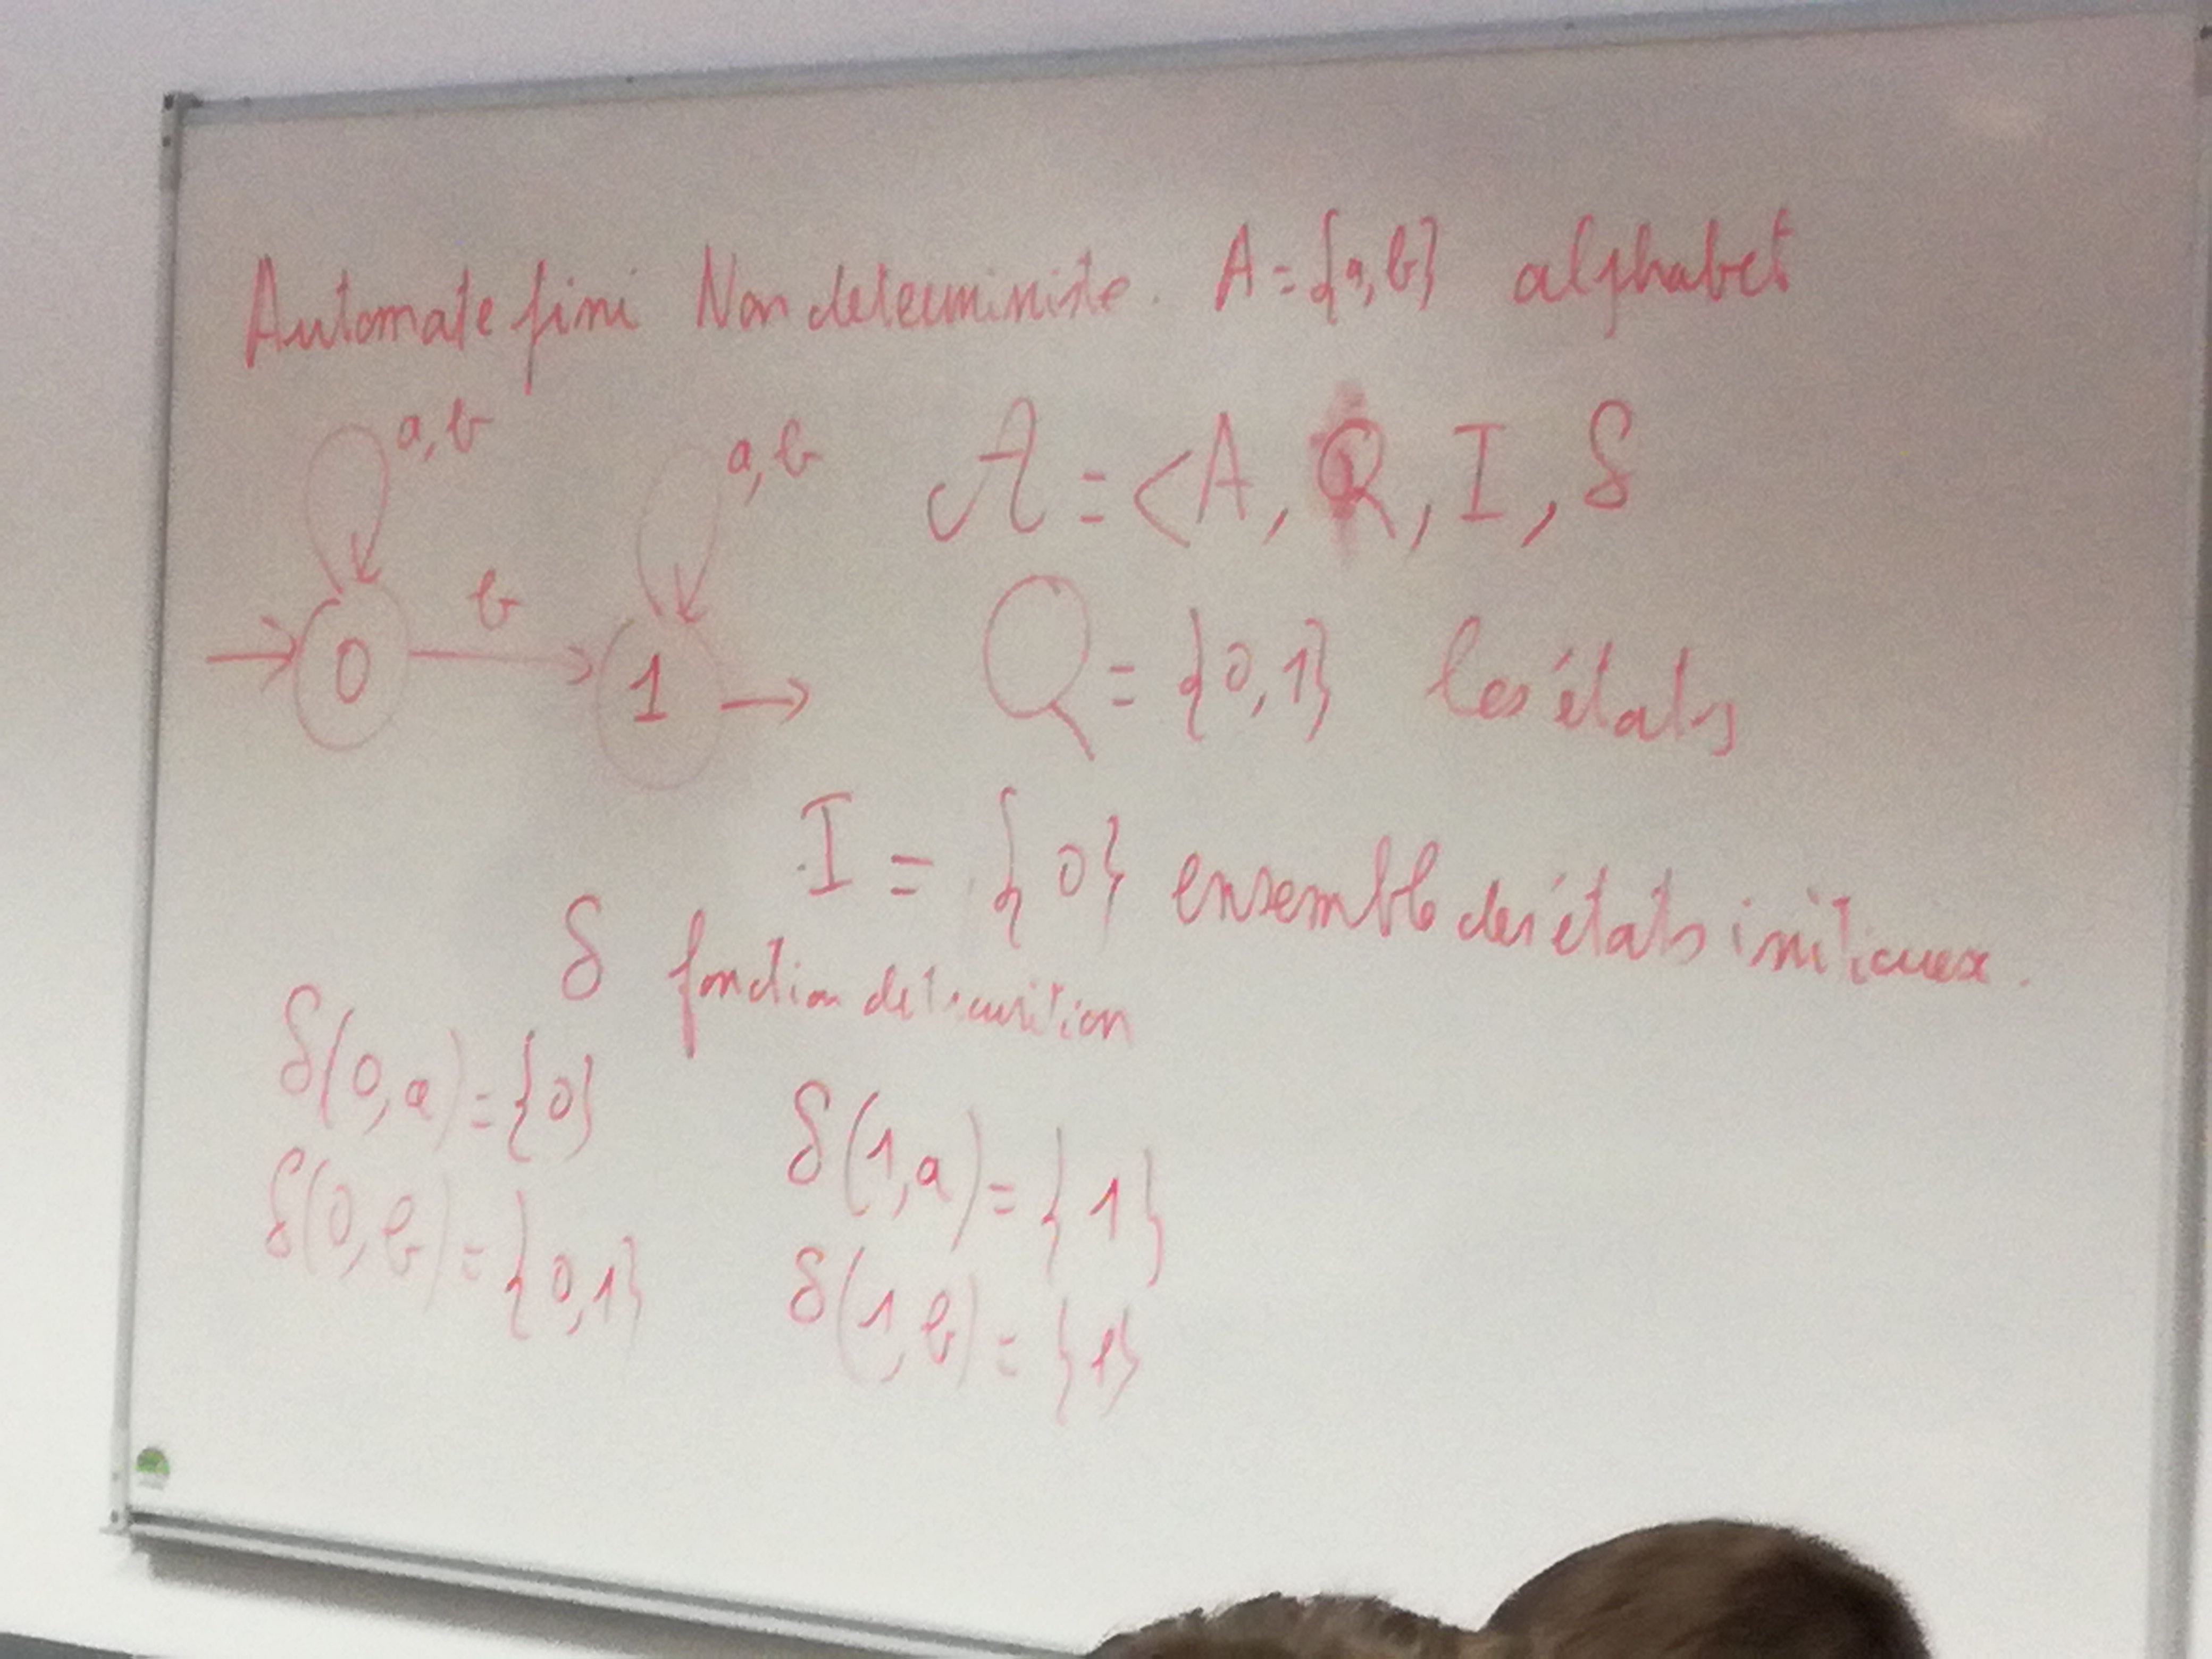 Automate fini Non deterministe. A = {a, b} alphabet
a, b
a, b
𝒜 = <A, Q, I, δ
b
0
1
Q = {0, 1} les états
I = {0} ensemble des états initiaux.
δ fonction de transition
δ(0, a) = {0}
δ(1, a) = {1}
δ(0, b) = {0, 1}
δ(1, b) = {1}